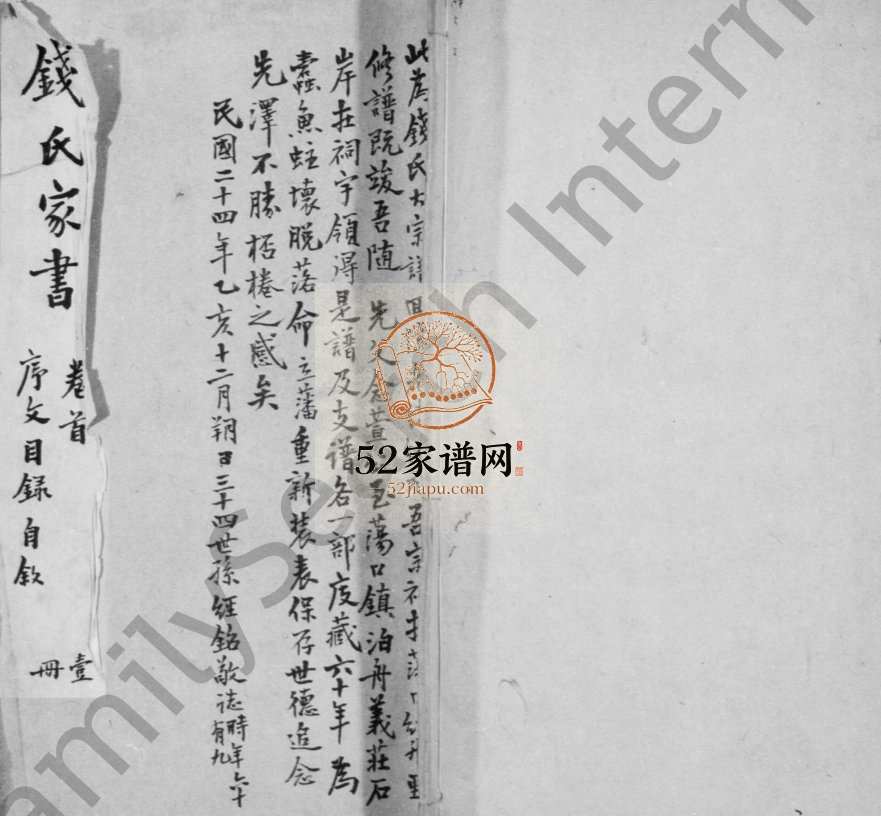 此為錢氏大宗譜
吾宗祠
修譜既竣吾随 先父念萱 至蕩口鎮泊舟義莊石
岸在祠宇領得是譜及支譜各一部庋藏六十年為
蠹魚蛀壞脱落命立藩重新裝表保存世德追念
先澤不勝桮棬之感矣
民國二十四年乙亥十二月朔日三十四世孫經銘敬誌時年六十有九
錢氏家書
卷首
序文目錄自敘
壹冊
52家谱网
52jiapu.com
FamilySearch International